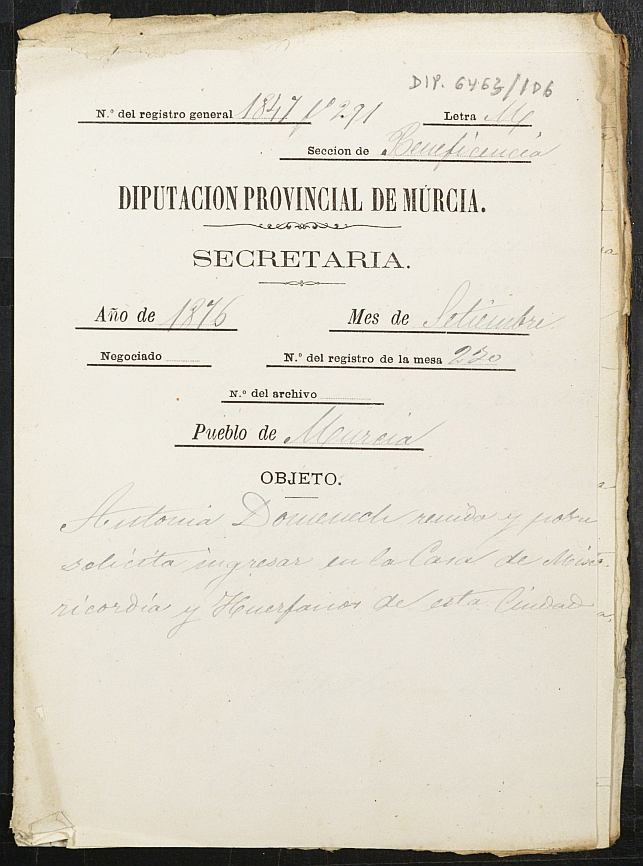 DIP. 6463/106
N.º del registro general 1847 fº 291 Letra M
Seccion de Beneficencia
DIPUTACION PROVINCIAL DE MÚRCIA.
SECRETARIA.
Año de 1876 Mes de Setiembre
Negociado N.º del registro de la mesa 230
N.º del archivo
Pueblo de Murcia
OBJETO.
Antonia Domenech y pobre
solicita ingresar en la Casa de Mise-
ricordia y Huerfanos de esta Ciudad